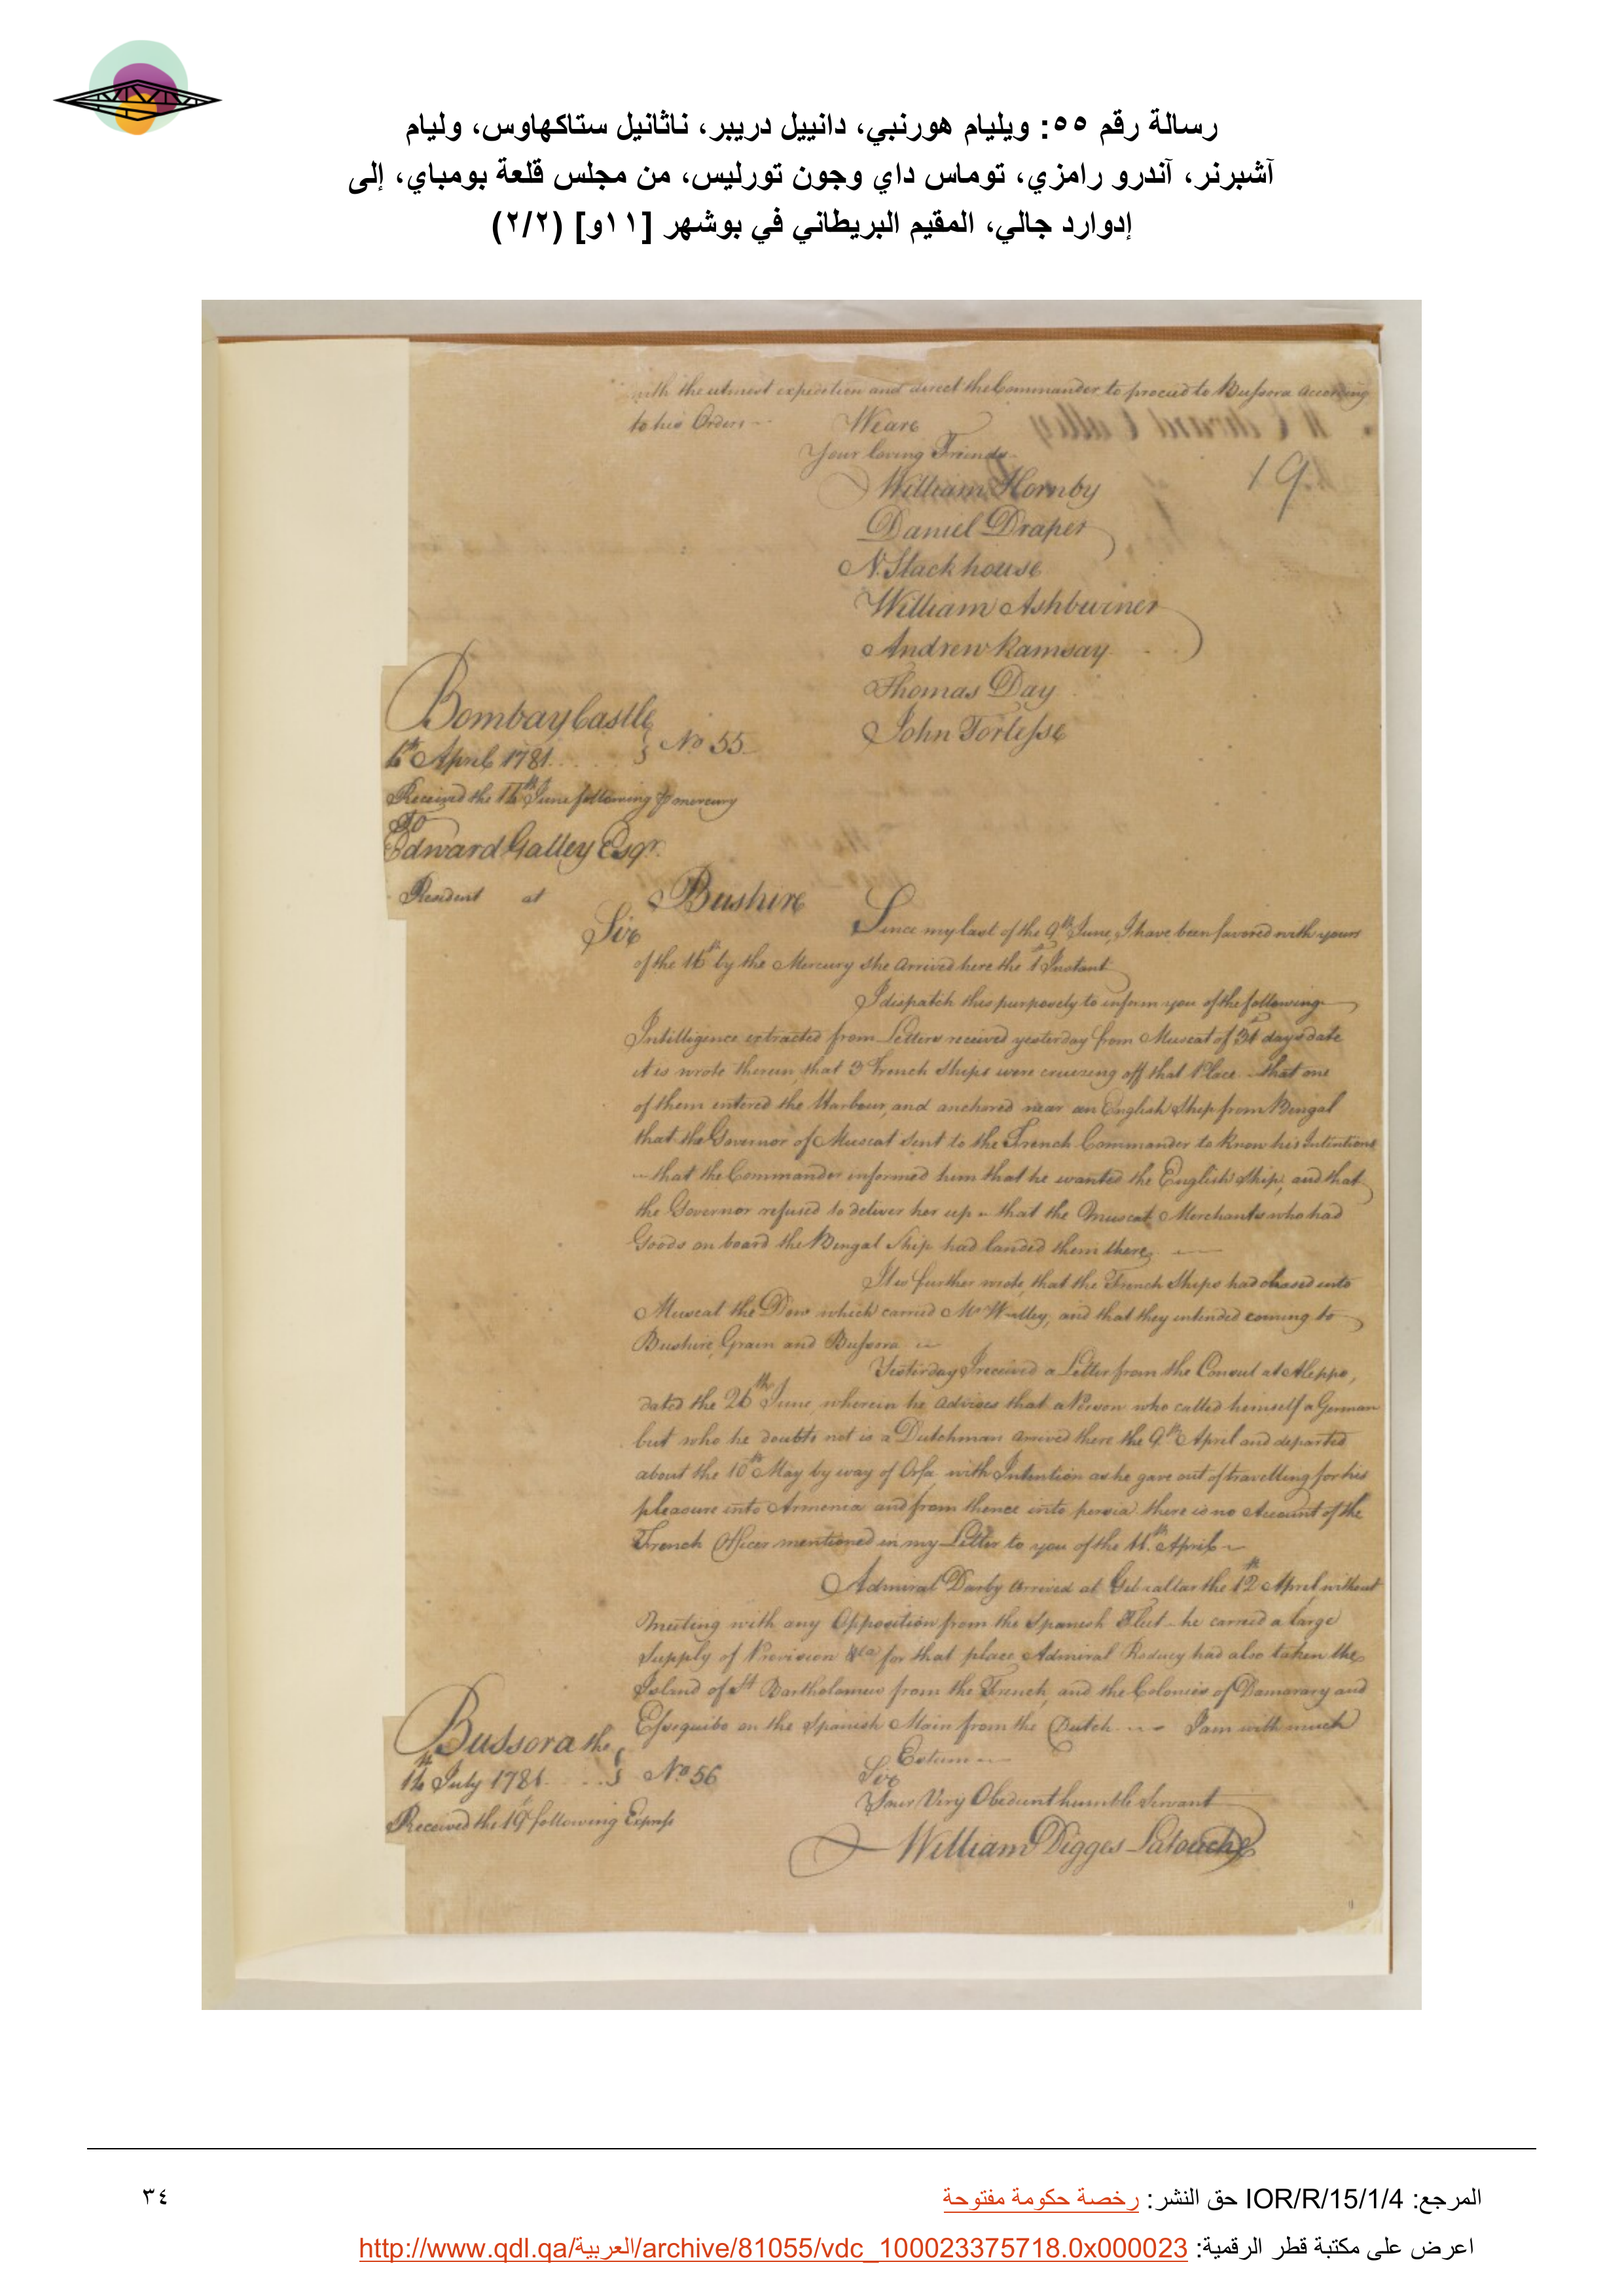 رسالة رقم ٥٥: ويليام هورنبي، دانييل دريبر، ناثانيل ستاكهاوس، وليام
آشبرنر، آندرو رامزي، توماس داي وجون تورليس، من مجلس قلعة بومباي، إلى
إدوارد جالي، المقيم البريطاني في بوشهر [١١و] (٢/٢)
with the utmost expedition and direct the Commander to proceed to Bussora according
to his Orders
We are
Your loving Friends
19
William Hornby
Daniel Draper
N. Stackhouse
William Ashburner
Andrew Ramsay
Thomas Day
John Torlesse
Bombay Castle
April 1781 No 55
Received the June following mercury
To
Edward Galley Esqr.
Resident at Bushire
Sir Since my last of the 9th June, I have been favored with yours
of the 16th by the Mercury she arrived here the 1st Instant
I dispatch this purposely to inform you of the following
Intelligence extracted from Letters received yesterday from Muscat of days date
it is wrote therein, that 3 French Ships were cruizing off that Place that one
of them entered the Harbour, and anchored near an English Ship from Bengal
that the Governor of Muscat sent to the French Commander to know his Intentions
that the Commander informed him that he wanted the English Ship, and that
the Governor refused to deliver her up that the Muscat Merchants who had
Goods on board the Bengal Ship had landed them there
It is further wrote, that the French Ships had chased into
Muscat the Dow which carried Mr and that they intended coming to
Bushire, Grain and Bussora
Yesterday I received a Letter from the Consul at Aleppo,
dated the 26th June, wherein he advises that a Person who called himself a German
but who he doubts not is a Dutchman arrived there the 9th April and departed
about the 10th May by way of Orfa with Intention as he gave out of travelling for his
pleasure into Armenia and from thence into persia there is no Account of the
French Officer mentioned in my Letter to you of the April
Admiral Darby arrived at Gibraltar the 12th April without
meeting with any Opposition from the Spanish Fleet he carried a large
Supply of Provision &ca for that place Admiral Rodney had also taken the
Island of St Bartholomew from the French, and the Colonies of Damarary and
Essequibo on the Spanish Main from the Dutch I am with much
Esteem
Sir
Your Very Obedient humble Servant
William Digges Latouche
Bussora the
July 1781 No 56
Received the 19th following Express
11
المرجع: IOR/R/15/1/4 حق النشر: رخصة حكومة مفتوحة
٣٤
اعرض على مكتبة قطر الرقمية: http://www.qdl.qa/العربية/archive/81055/vdc_100023375718.0x000023